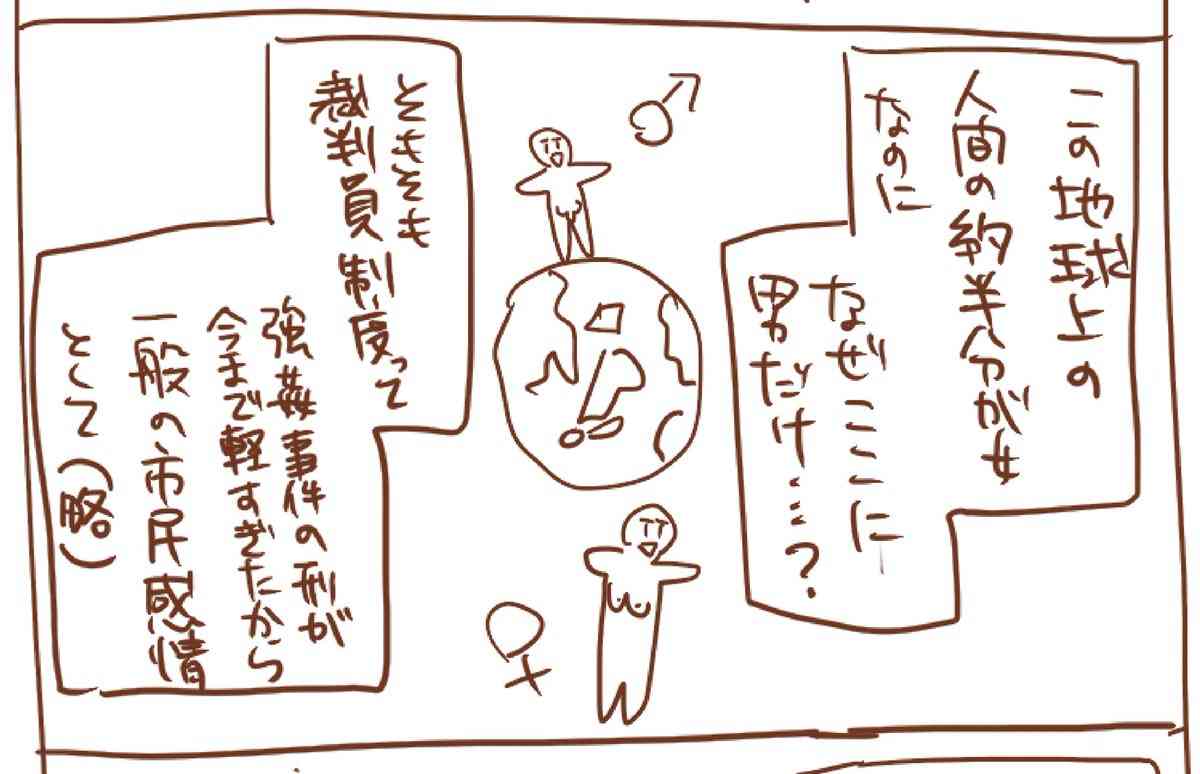 この地球上の
人間の約半分が女
なのに
なぜここに
男だけ……?
そもそも
裁判員制度って
強姦事件の刑が
今まで軽すぎたから
一般の市民感情
として(略。)